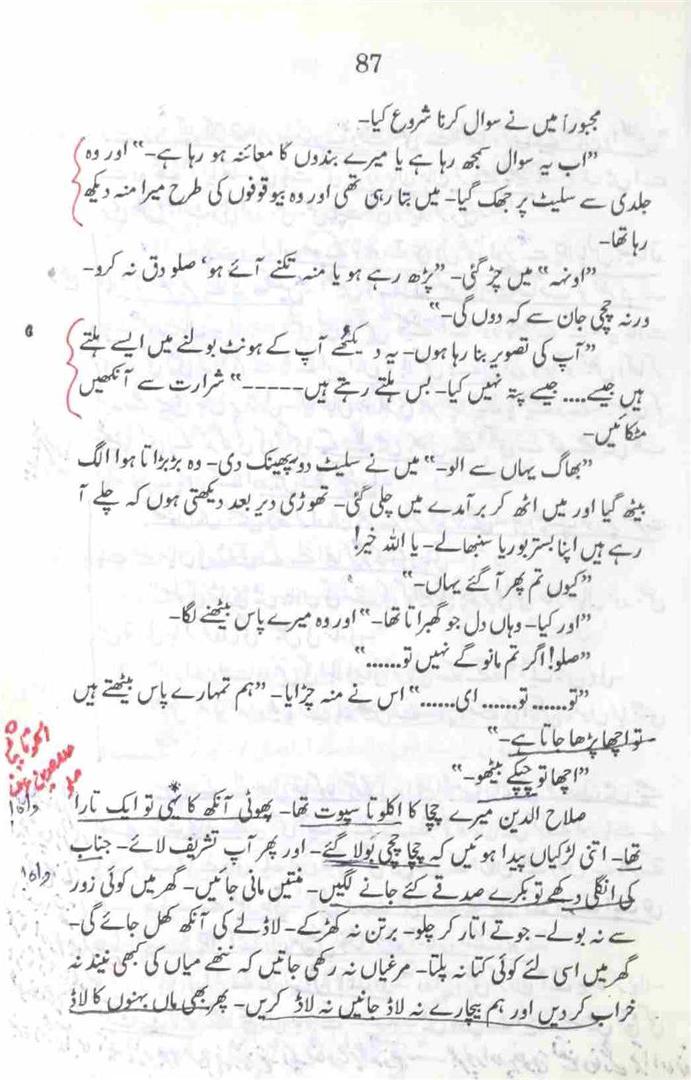 87
مجبوراً میں نے سوال کرنا شروع کیا۔
”اب یہ سوال سمجھ رہا ہے یا میرے بندوں کا معائنہ ہو رہا ہے۔“ اور وہ
جلدی سے سلیٹ پر جھک گیا۔ میں بتا رہی تھی اور وہ بیوقوفوں کی طرح میرا منہ دیکھ
رہا تھا۔
”اونہہ“ میں چڑ گئی۔ ”پڑھ رہے ہو یا منہ تکنے آئے ہو‘ صلو دق نہ کرو۔
ورنہ چچی جان سے کہ دوں گی۔“
”آپ کی تصویر بنا رہا ہوں۔ یہ دیکھئے آپ کے ہونٹ بولنے میں ایسے ہلتے
ہیں جیسے.... جیسے پتہ نہیں کیا۔ بس ہلتے رہتے ہیں------“ شرارت سے آنکھیں
مٹکائیں۔
”بھاگ یہاں سے الو۔“ میں نے سلیٹ دور پھینک دی۔ وہ بڑبڑاتا ہوا الگ
بیٹھ گیا اور میں اٹھ کر برآمدے میں چلی گئی۔ تھوڑی دیر بعد دیکھتی ہوں کہ چلے آ
رہے ہیں اپنا بستر بوریا سنبھالے۔ یا اللہ خیر!
”کیوں تم پھر آ گئے یہاں۔“
”اور کیا۔ وہاں دل جو گھبراتا تھا۔“ اور وہ میرے پاس بیٹھنے لگا۔
”صلو! اگر تم مانو گے نہیں تو......“
”تو...... تو...... ای......“ اس نے منہ چڑایا۔ ”ہم تمہارے پاس بیٹھتے ہیں
تو اچھا پڑھا جاتا ہے۔“
”اچھا تو چپکے بیٹھو۔“
صلاح الدین میرے چچا کا اکلوتا سپوت تھا۔ پھوٹی آنکھ کا یہی تو ایک تارا
تھا۔ اتنی لڑکیاں پیدا ہوئیں کہ چچا چچی بولا گئے۔ اور پھر آپ تشریف لائے۔ جناب
کی انگلی دکھے تو بکرے صدقے کئے جانے لگیں۔ منتیں مانی جائیں۔ گھر میں کوئی زور
سے نہ بولے۔ جوتے اتار کر چلو۔ برتن نہ کھڑکے۔ لاڈلے کی آنکھ کھل جائے گی۔
گھر میں اسی لئے کوئی کتا نہ پلتا۔ مرغیاں نہ رکھی جاتیں کہ ننھے میاں کی کبھی نیند نہ
خراب کر دیں اور ہم بیچارے نہ لاڈ جانیں نہ لاڈ کریں۔ پھر بھی ماں بہنوں کا لاڈ